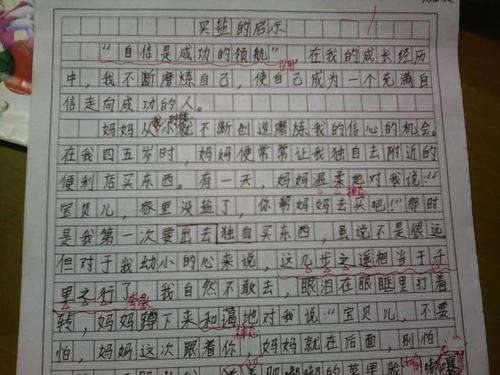 买盐的启示
“自信是成功的领航”，在我的成长经历
中，我不断磨炼自己，使自己成为一个充满自
信走向成功的人。
妈妈从小就不断创造磨炼我的信心的机会。
在我四五岁时，妈妈便常常让我独自去附近的
便利店买东西。有一天，妈妈温柔地对我说：“
宝贝儿，家里没盐了，你帮妈妈去买吧！”那时
是我第一次要出去独自买东西，虽说不是很远
但对于我幼小的心来说，这几步之遥相当于千
里之行了，我自然不敢去，眼泪在眼眶里打着
转，妈妈蹲下来和蔼地对我说：“宝贝儿，不要
怕，妈妈这次跟着你，妈妈就在后面，别怕
嘟嘟的菜里脸